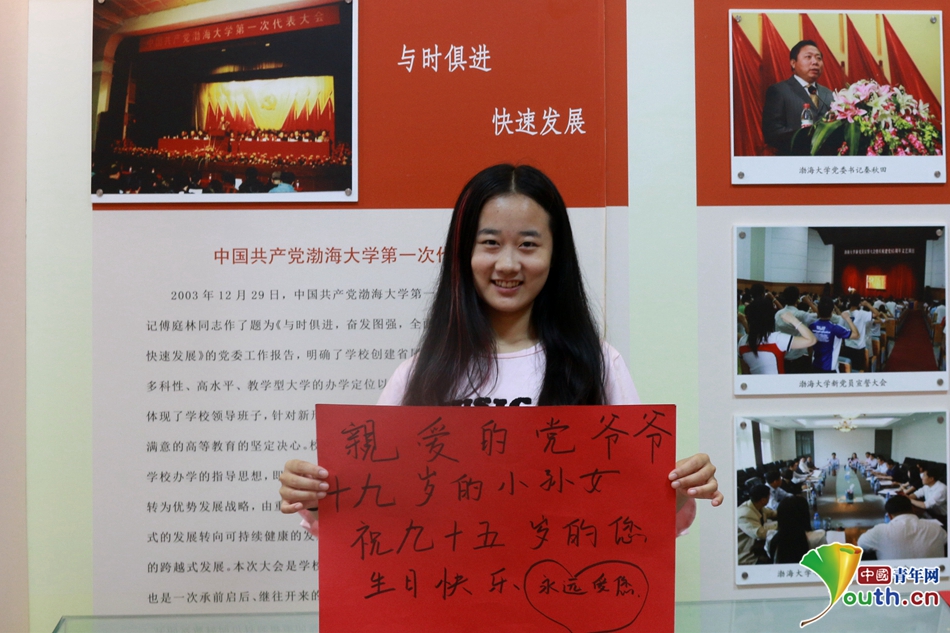 中国共产党渤海大学第一次代表大会
与时俱进
快速发展
渤海大学党委书记秦秋田
中国共产党渤海大学第一次代
2003年12月29日，中国共产党渤海大学第一
记傅庭林同志作了题为《与时俱进，奋发图强，全面
快速发展》的党委工作报告，明确了学校创建省
多科性、高水平、教学型大学的办学定位以
体现了学校领导班子，针对新
满意的高等教育的坚定决心。校
学校办学的指导思想，即
转为优势发展战略，由重
式的发展转向可持续健康的发
的跨越式发展。本次大会是学校
也是一次承前启后、继往开来的
渤海大学新党员宣誓大会
渤海大学
親爱的党爷爷
十九岁的小孙女
祝九十五岁的您
生日快乐 永远爱您
中国青年网
Youth.cn